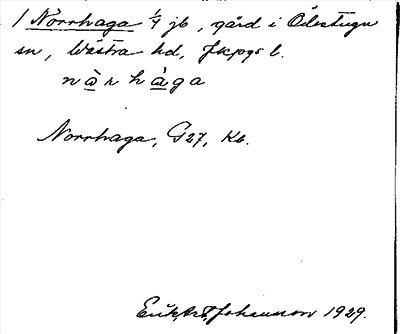 1 Norrhaga 1/4 jb, gård i Ödestugu
sn, Västra hd, Jkpgs l.
nàrhàga
Norrhaga, G27, Kb.
Erik Johansson 1929.